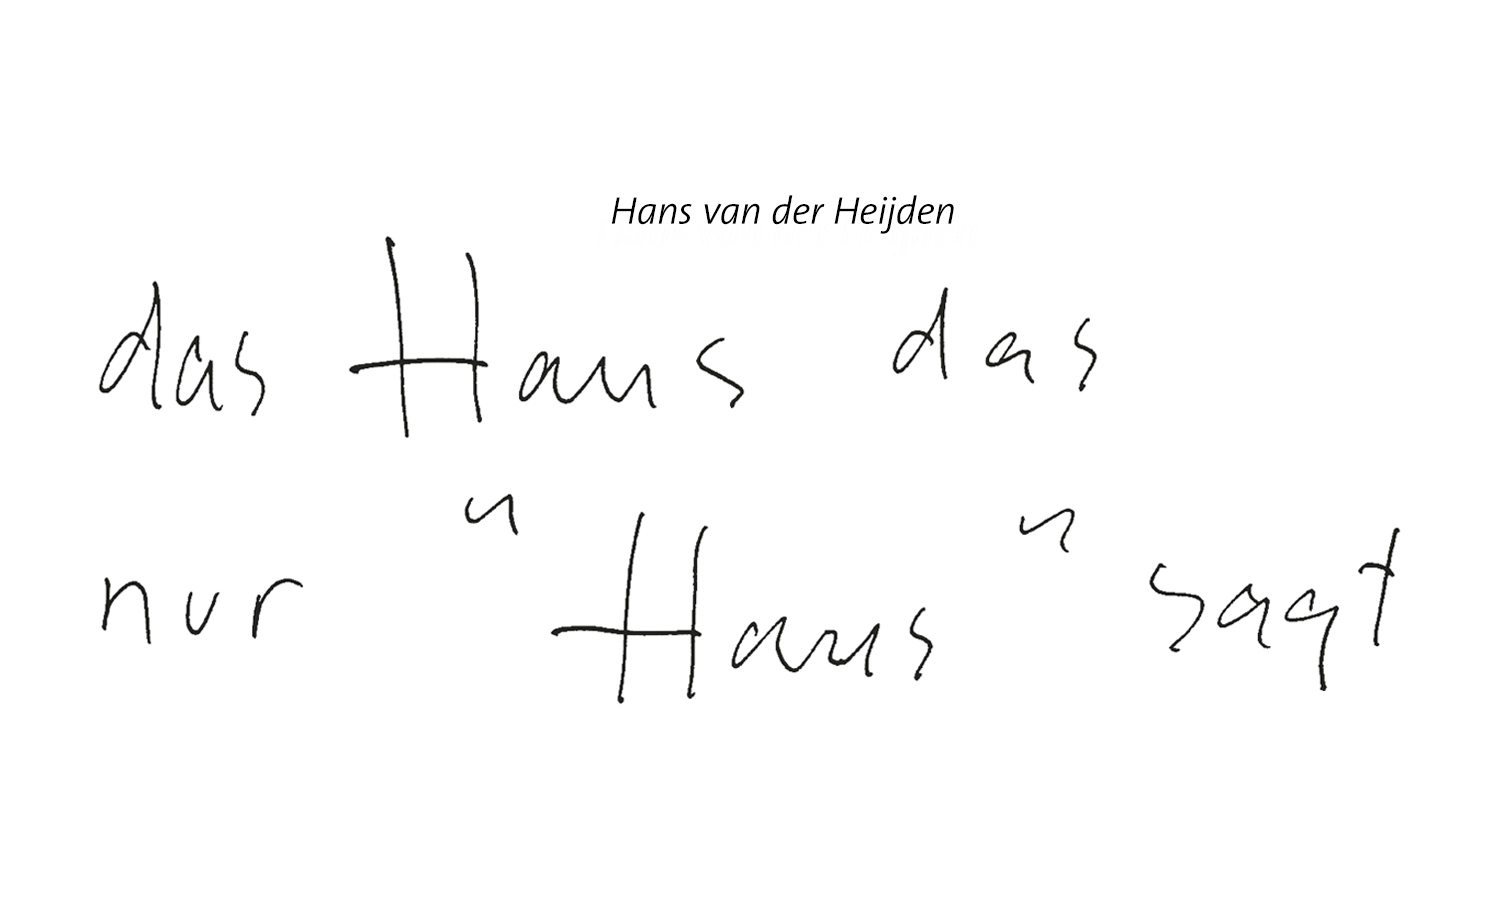 Hans van der Heijden
das Haus das
nur "Haus" sagt